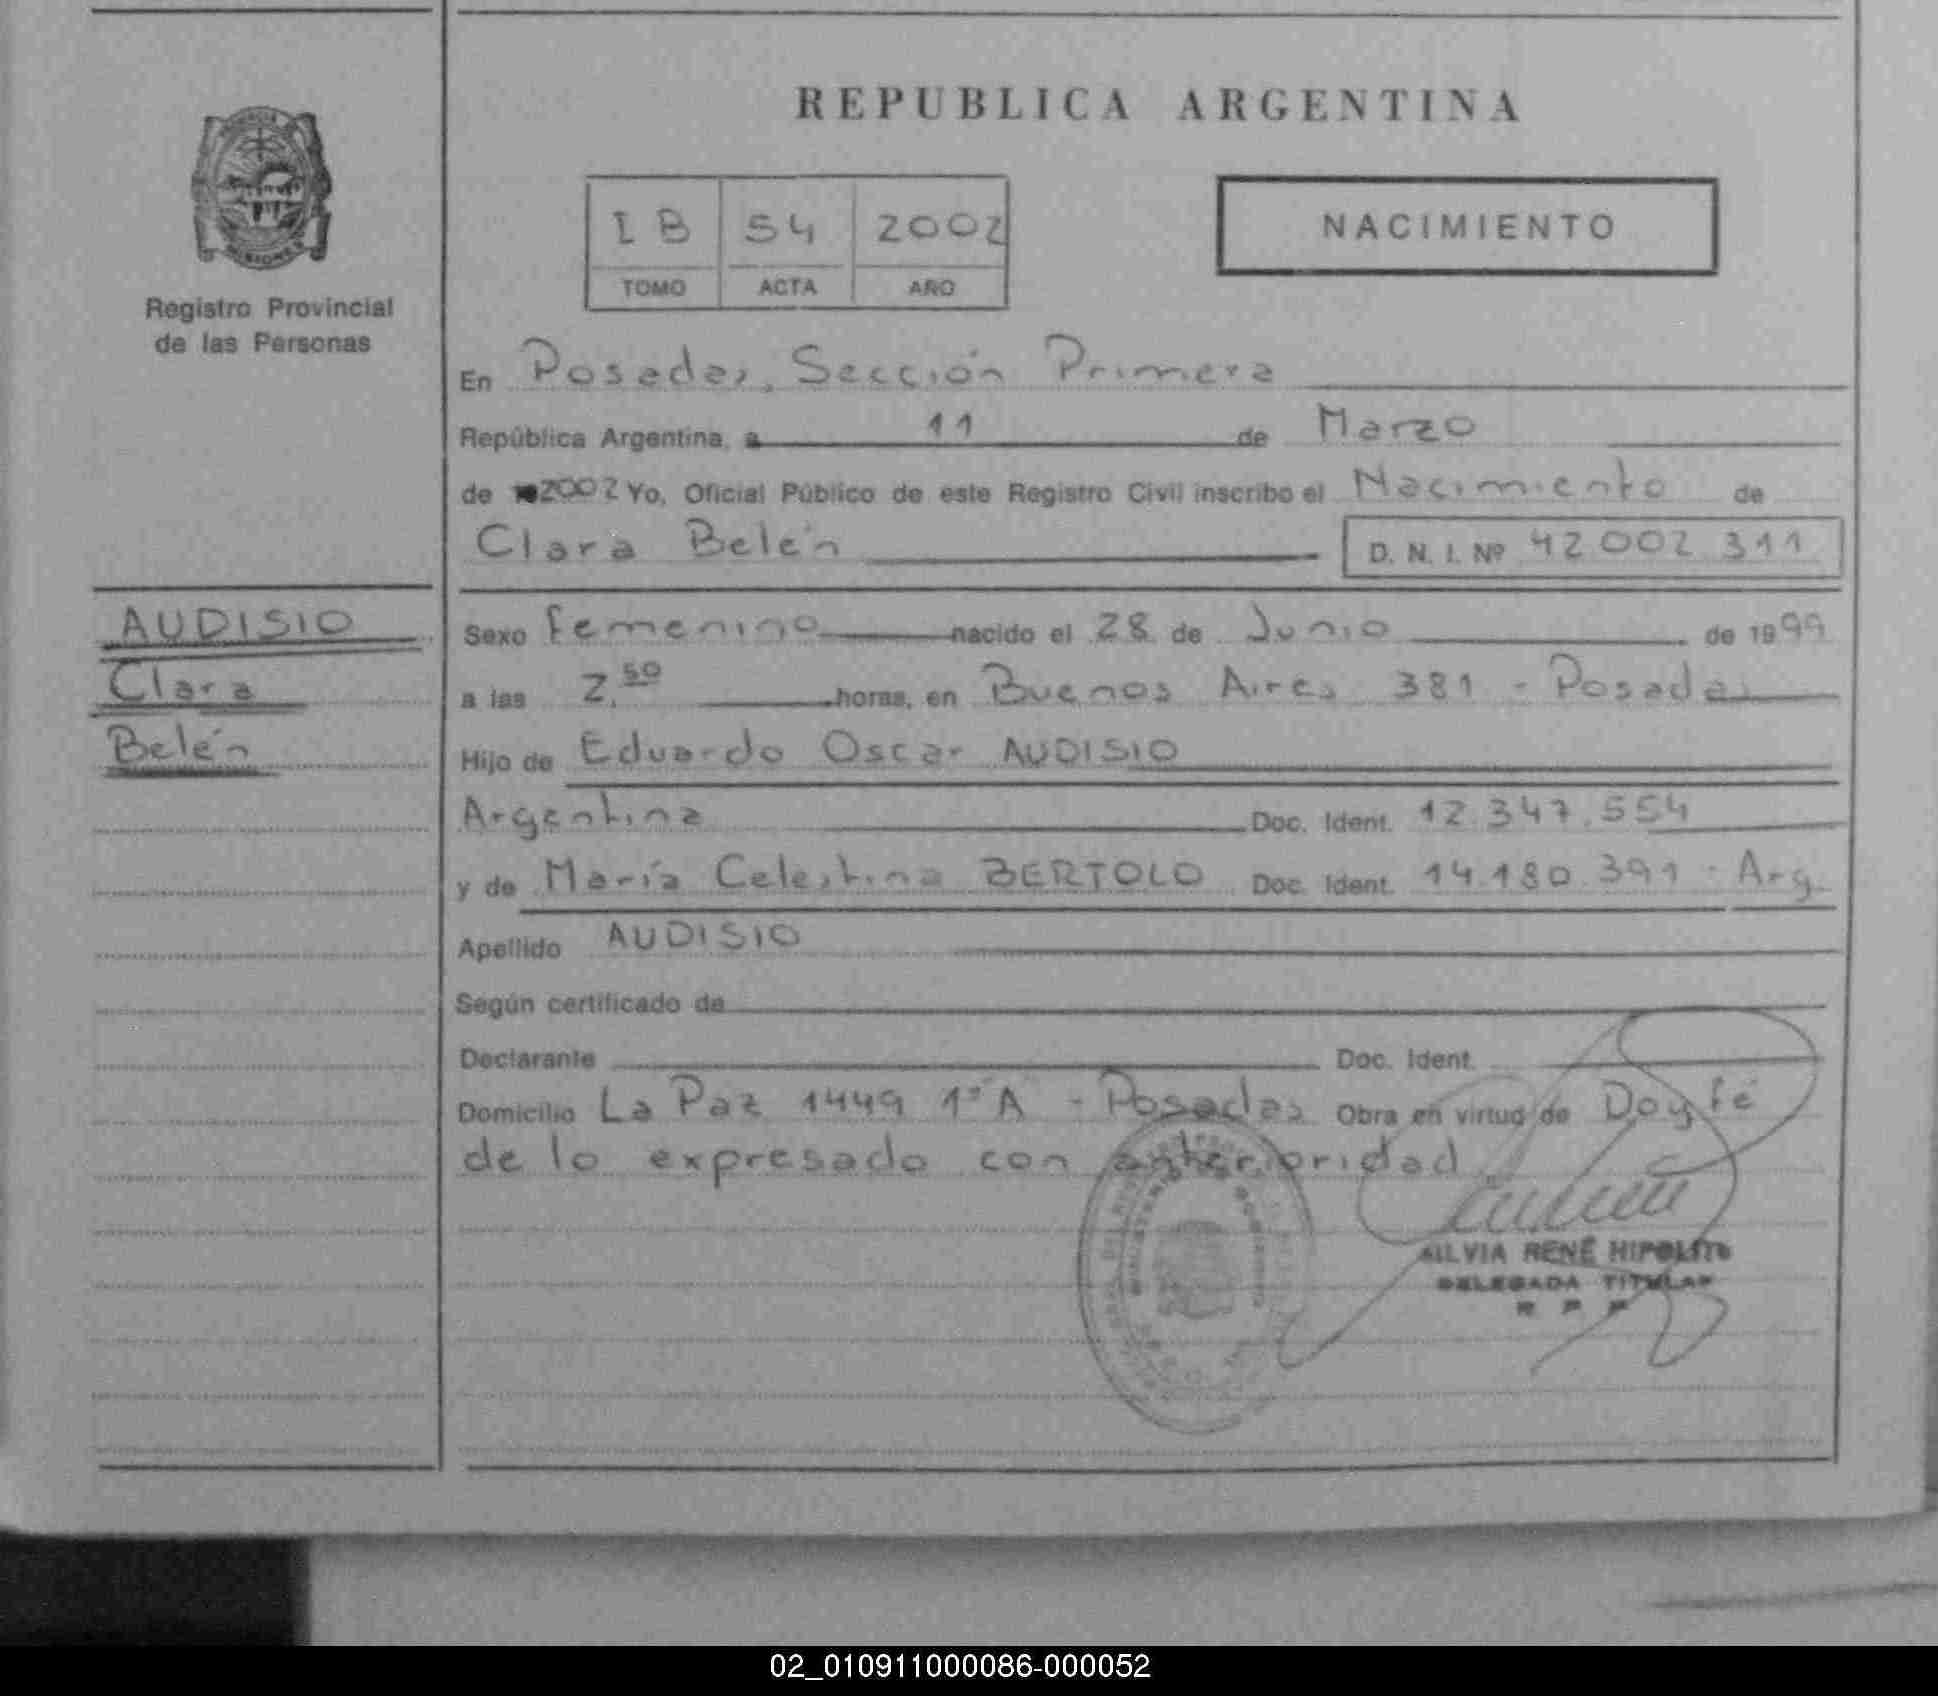 REPUBLICA ARGENTINA
I B 54 2002
TOMO ACTA AÑO
NACIMIENTO
Registro Provincial
de las Personas
En Posadas, Sección Primera
República Argentina, a 11 de Marzo
de 2002 Yo, Oficial Público de este Registro Civil inscribo el Nacimiento de
Clara Belén D. N. I. Nº 42 002 311
AUDISIO
Clara
Belén
Sexo femenino nacido el 28 de Junio de 1999
a las 2,50 horas, en Buenos Aires 381 - Posadas
Hijo de Eduardo Oscar AUDISIO
Argentina Doc. Ident. 12.347.554
y de María Celestina BERTOLO Doc. Ident. 14.180.391 - Arg.
Apellido AUDISIO
Según certificado de
Declarante Doc. Ident.
Domicilio La Paz 1449 1º A - Posadas Obra en virtud de Doy fé
de lo expresado con anterioridad
SILVIA RENÉ HIPOLITO
DELEGADA TITULAR
R P P
02_010911000086-000052